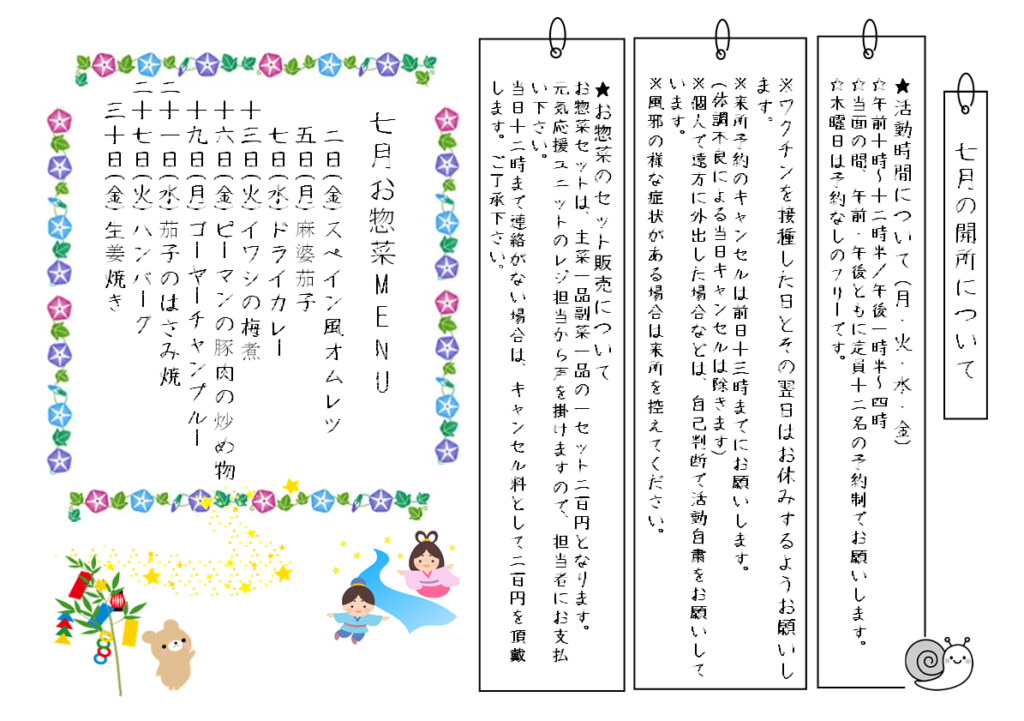 七月の開所について
★活動時間について(月・火・水・金)
☆午前十時~十二時半/午後一時半~四時
☆当面の間、午前・午後ともに定員十二名の予約制でお願いします。
☆木曜日は予約なしのフリーです。
※ワクチンを接種した日とその翌日はお休みするようお願いし
ます。
※来所予約のキャンセルは前日十三時までにお願いします。
(体調不良による当日キャンセルは除きます)
※個人で遠方に外出した場合などは、自己判断で活動自粛をお願いして
います。
※風邪の様な症状がある場合は来所を控えてください。
★お惣菜のセット販売について
お惣菜セットは、主菜一品副菜一品の一セット二百円となります。
元気応援ユニットのレジ担当から声を掛けますので、担当者にお支払
い下さい。
当日十二時まで連絡がない場合は、キャンセル料として二百円を頂戴
します。ご了承下さい。
七月お惣菜MENU
二日(金)スペイン風オムレツ
五日(月)麻婆茄子
七日(水)ドライカレー
十三日(火)イワシの梅煮
十六日(金)ピーマンの豚肉の炒め物
十九日(月)ゴーヤーチャンプルー
二十一日(水)茄子のはさみ焼
二十七日(火)ハンバーグ
三十日(金)生姜焼き